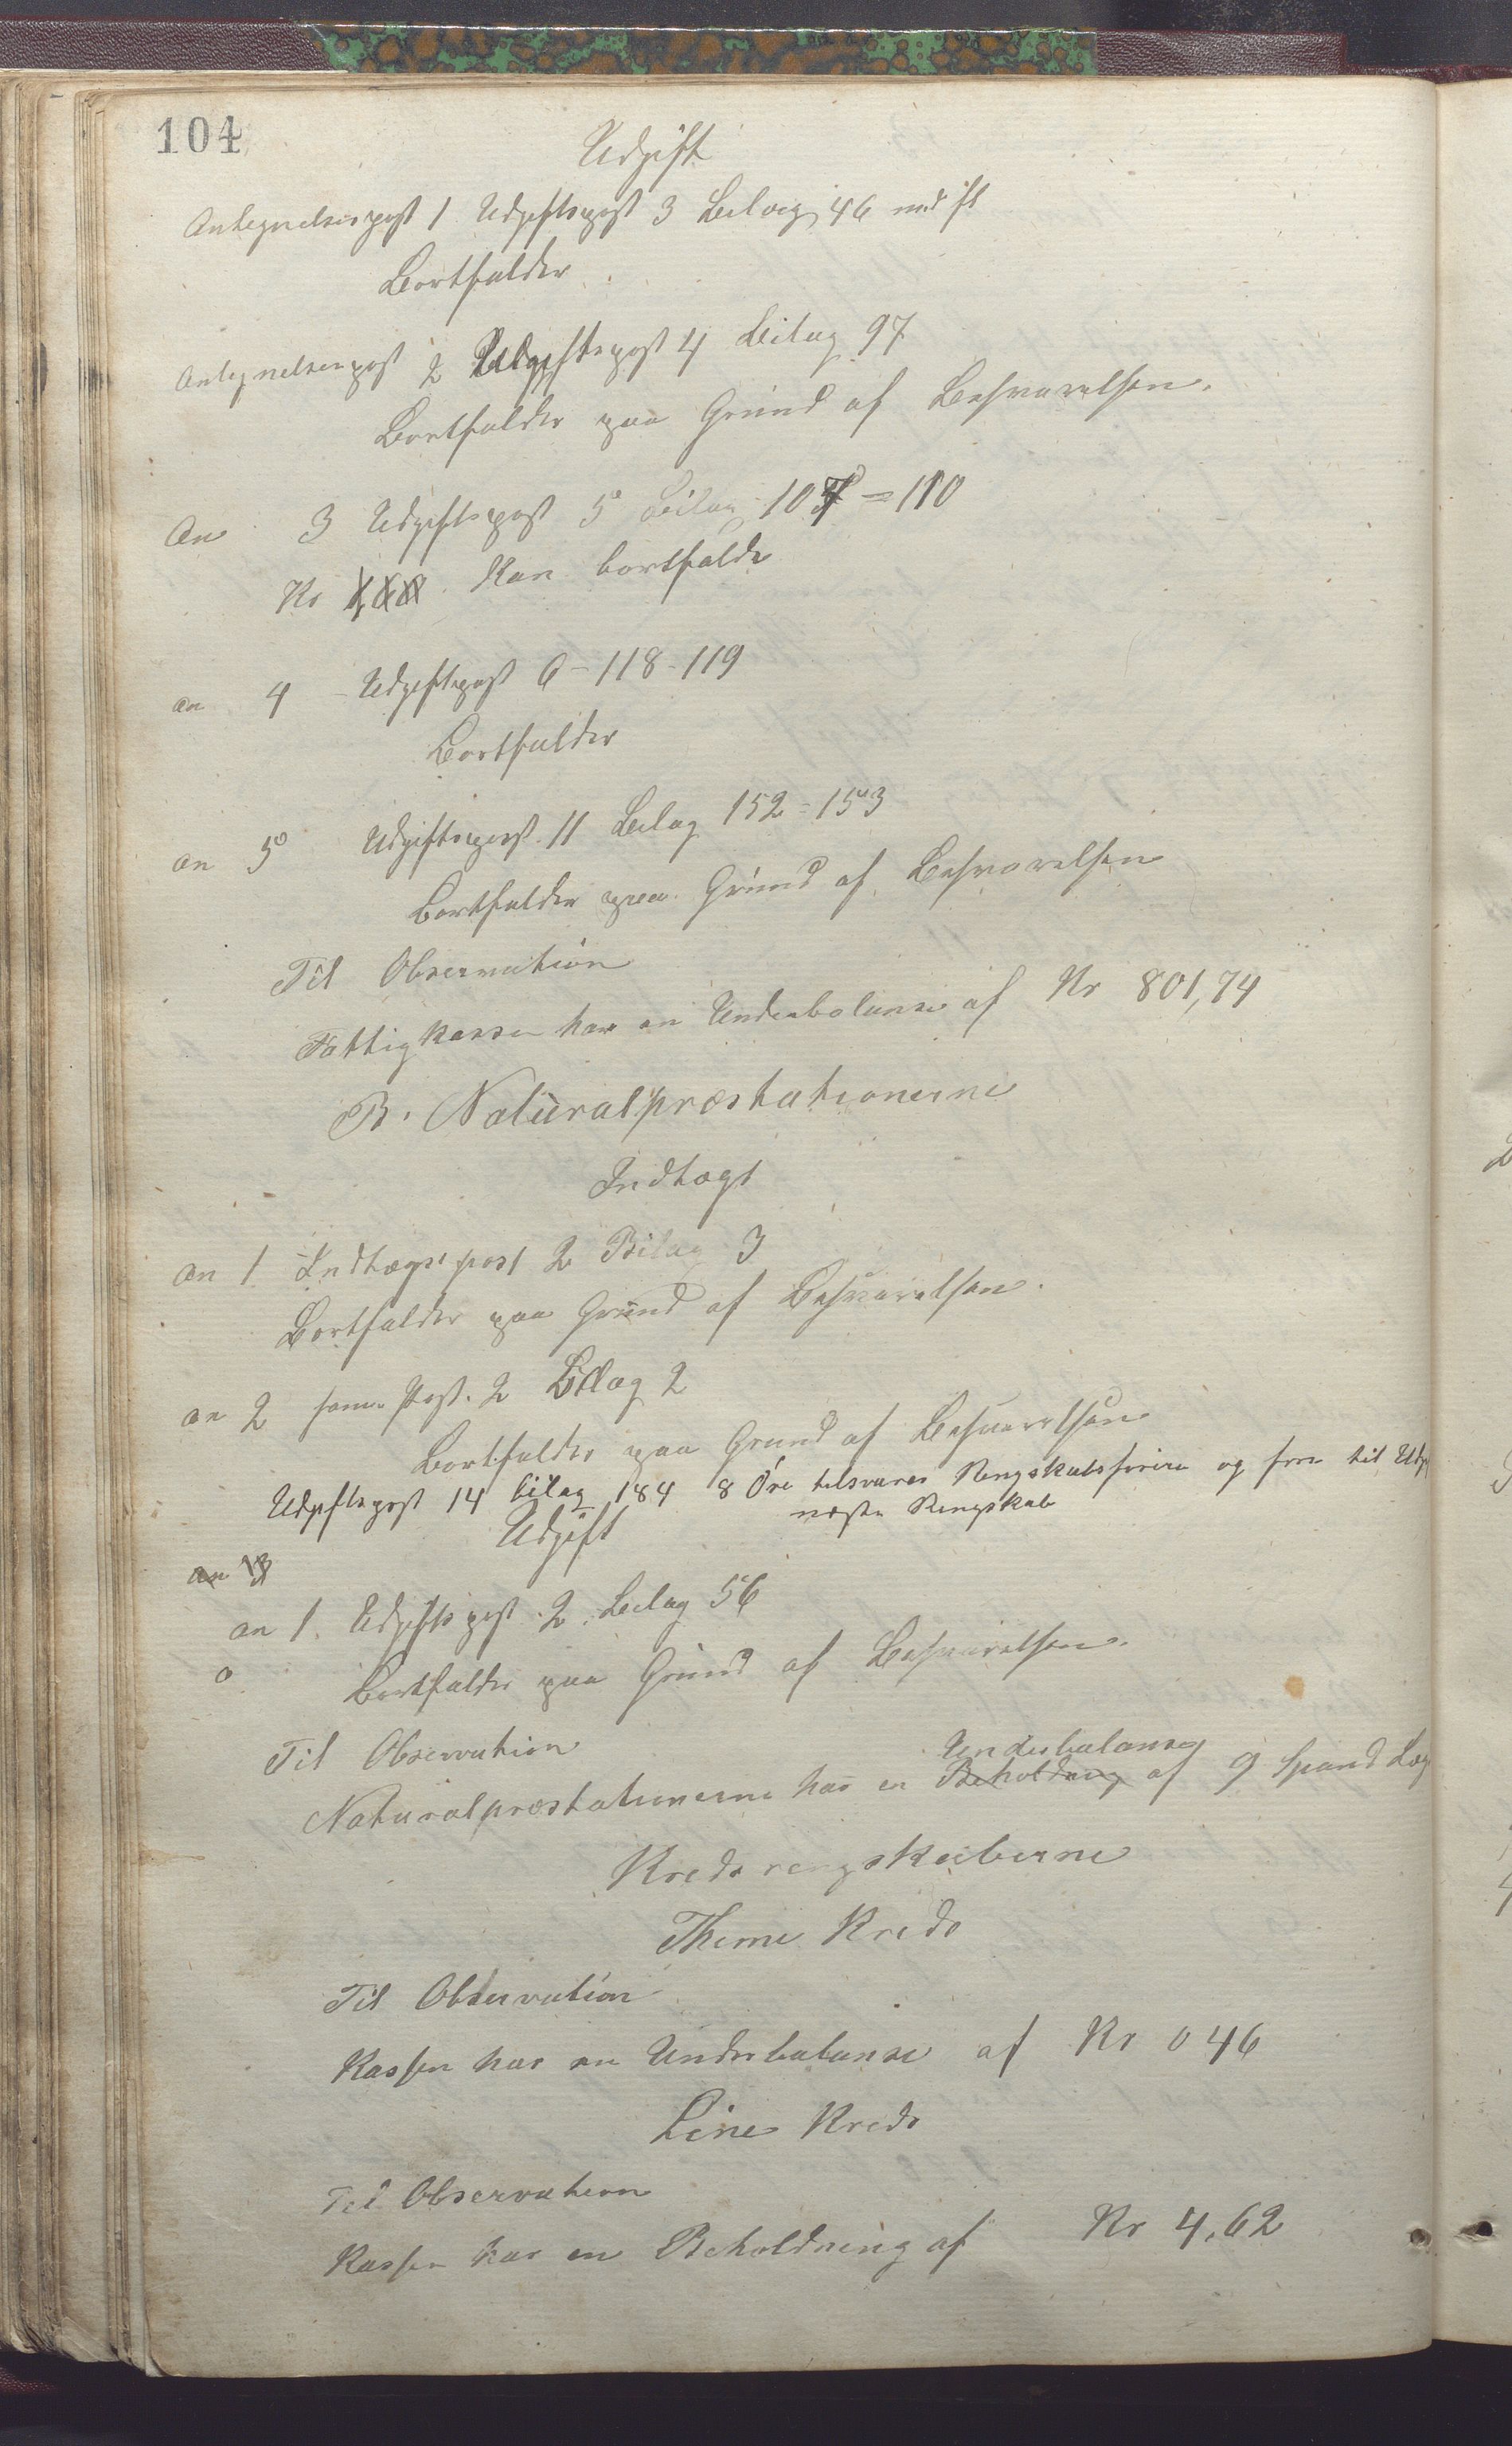 104
Udgift
Antegnelsespost 1 Udgiftspost 3 Bilag 46 med ft
Bortfalder
Antegnelsespost 2 Udgiftspost 4 Bilag 97
Bortfalder paa Grund af Besvarelsen.
An 3 Udgiftspost 5 Bilag 107 = 110
Kr kan bortfalde
an 4 - Udgiftspost 6 - 118 - 119
Bortfalder
an 5 Udgiftspost. 11 Bilag 152 = 153
Bortfalder paa Grund af Besvarelsen
Til Observation
Fattigkassen har en Underbalanse af Kr 801,74
B. Naturalpræstationerne
Indtægt
an 1 Indtægtspost 2 Bilag 3
Bortfalder paa Grund af Besvarelsen.
an 2 samme Post. 2 Bilag 2
Bortfalder paa Grund af Besvarelsen
Udgiftspost 14 bilag 184 8 Øre tilsvares Rengskabsfører og føres til Udg
næste Rengskab
Udgift
an 13
an 1. Udgiftspost 2. Bilag 56
o Bortfalder paa Grund af Besvarelsen.
Til Observation
Underbalanse
Naturalpræstationerne har en Beholdning af 9 Spand Læg
Kredsrengskaberne
Thime Kreds
Til Observation
Kassen har en Underbalanse af Kr 0 46
Line Kreds
Til Observation
Kassen har en Beholdning af Kr 4,62